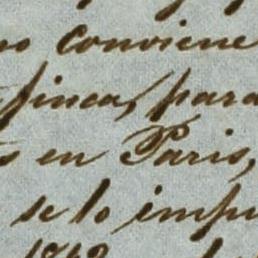 no conviene
finca, para
s en Paris,
se lo impu